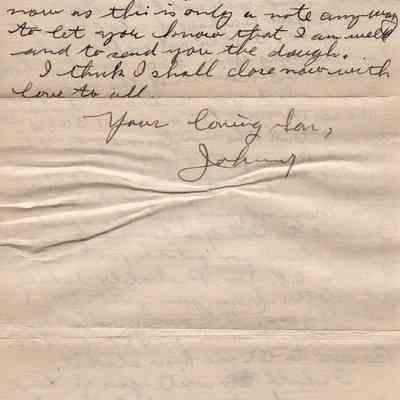 now as this is only a note anyway
to let you know that I am well
and to send you the dough.
I think I shall close now with
love to all.
Your loving son,
Johnny